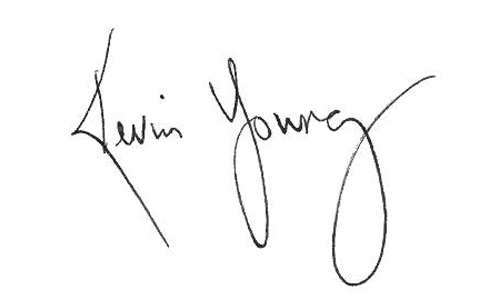 Kevin Young